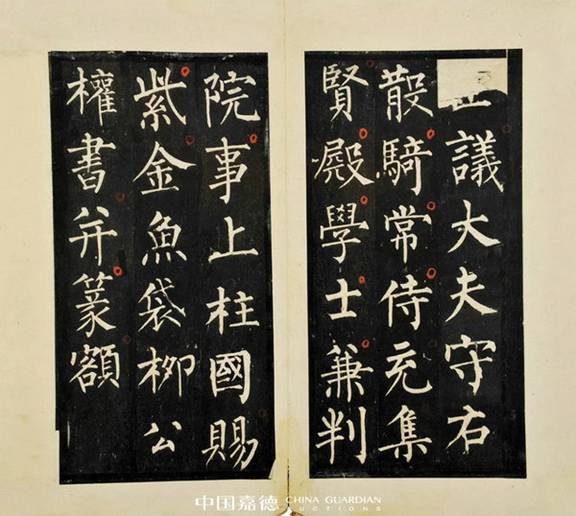 議大夫守右
散騎常侍充集
賢殿學士兼判
院事上柱國賜
紫金魚袋柳公
權書并篆額
中国嘉德 CHINA GUARDIAN AUCTIONS